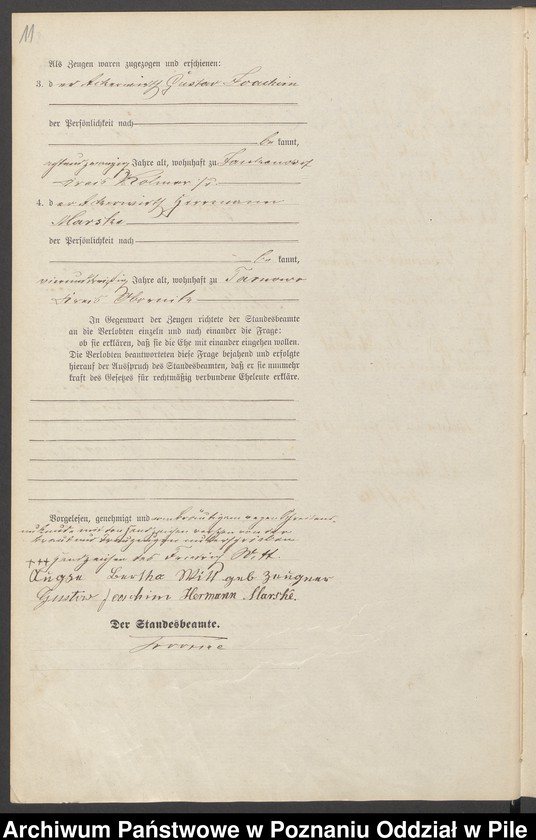 11.
Als Zeugen waren zugezogen und erschienen:
3. der Ackerwirth Gustav Joachim
der Persönlichkeit nach
be kannt,
Jahre alt, wohnhaft zu
Kreis Kolmar i/P.
4. der Ackerwirth Herrmann
Marske
der Persönlichkeit nach
be kannt,
vierunddreißig Jahre alt, wohnhaft zu Tarnowo
Kreis Obornik
In Gegenwart der Zeugen richtete der Standesbeamte
an die Verlobten einzeln und nach einander die Frage:
ob sie erklären, daß sie die Ehe mit einander eingehen wollen.
Die Verlobten beantworteten diese Frage bejahend und erfolgte
hierauf der Ausspruch des Standesbeamten, daß er sie nunmehr
kraft des Gesetzes für rechtmäßig verbundene Eheleute erkläre.
Vorgelesen, genehmigt und vom Bräutigam wegen Schreibens
unkunde mit den Handzeichen versehen von der
Braut und den Zeugen unterschrieben
+++ Handzeichen des Friedrich Witt
Bertha Witt geb Zeugner
Gustav Joachim Hermann Marske.
Der Standesbeamte.
Archiwum Państwowe w Poznaniu Oddział w Pile